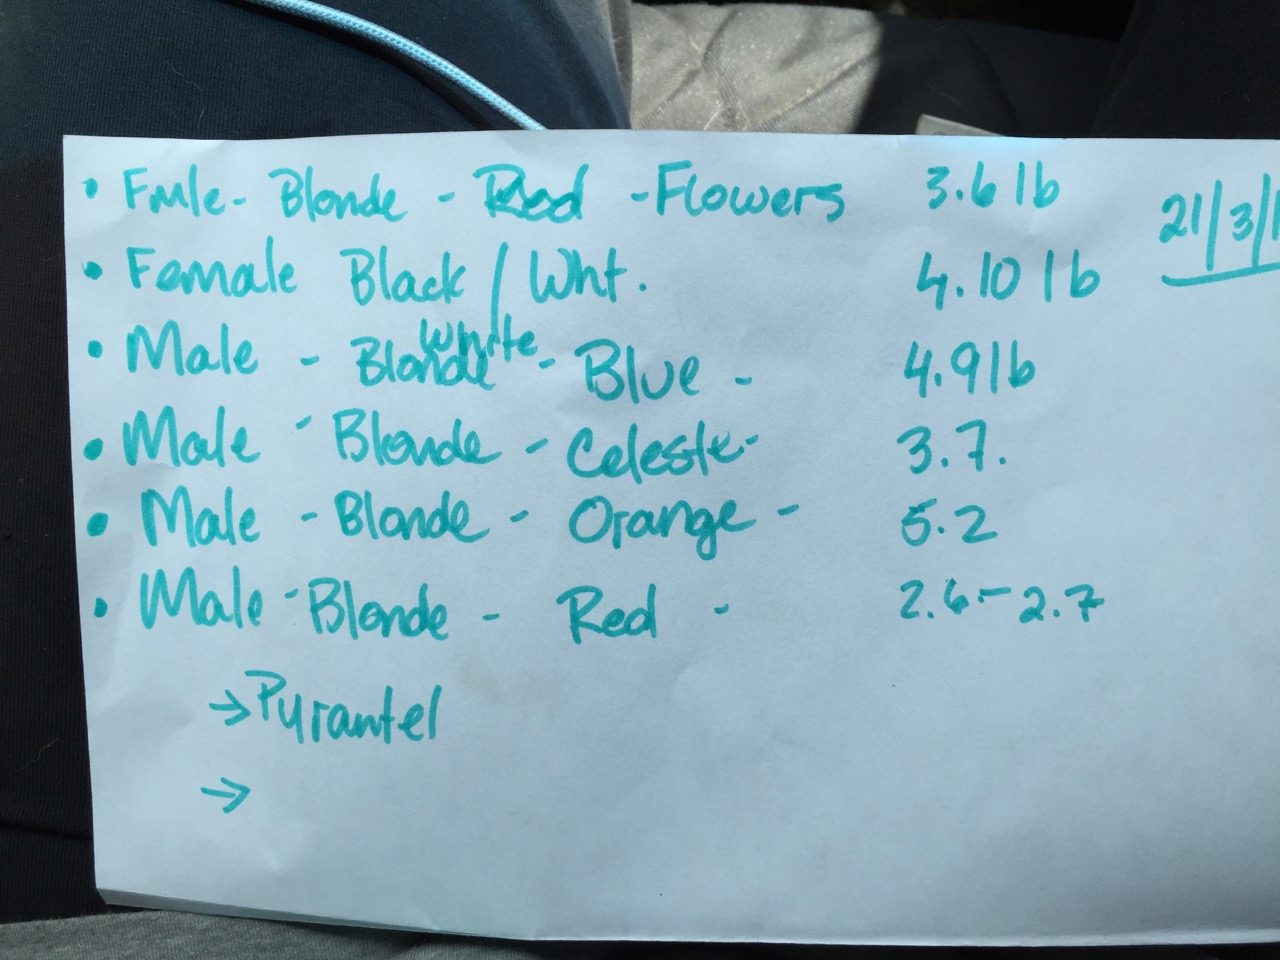 • Fmle - Blonde - Red - Flowers 3.6 lb
21/3/1
• Female Black / Wht. 4.10 lb
• Male - Blonde White - Blue - 4.9 lb
• Male - Blonde - Celeste - 3.7.
• Male - Blonde - Orange - 5.2
• Male - Blonde - Red - 2.6 - 2.7
→ Pyrantel
→